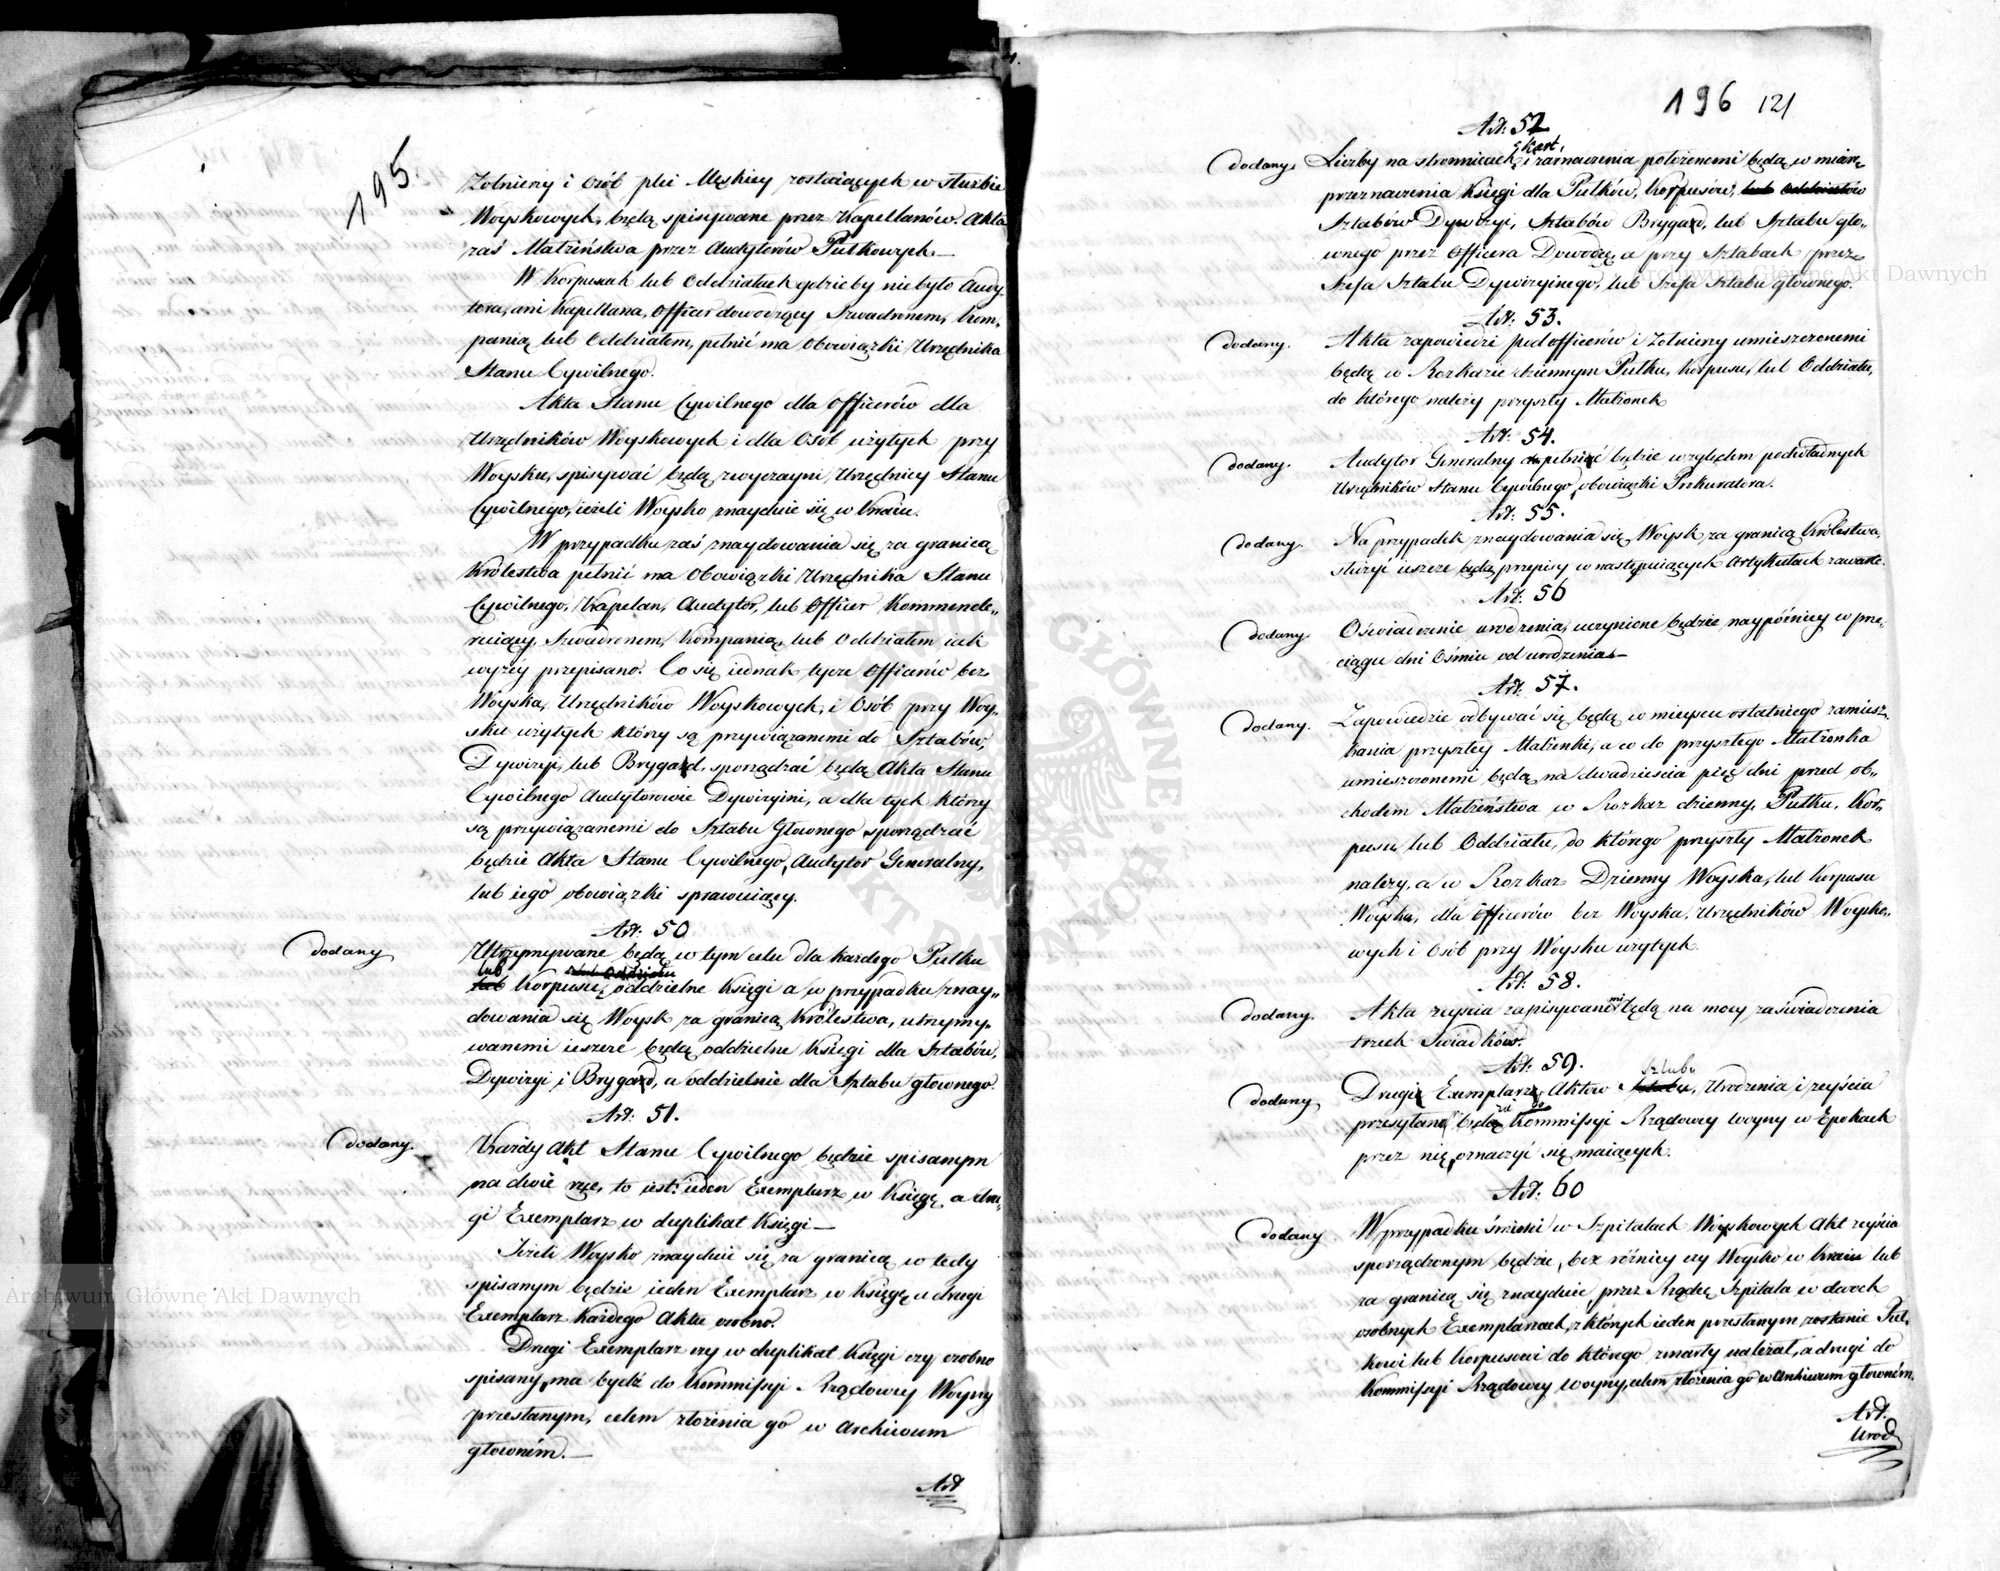 195.
Żołnierzy i Osób płci Męskiey zostaiących w służbie
Woyskowych, będą spisywane przez Kapellanów. Akta
zaś Małżeństwa przez Audytorów Pułkowych.—
W Korpusach lub Oddziałach gdzieby niebyło Audy-
tora, ani Kapellana, Officer dowodzący Szwadronem, Kom-
panią lub Oddziałem, pełnić ma Obowiązki Urzędnika
Stanu Cywilnego.
Akta Stanu Cywilnego dla Officerów dla
Urzędników Woyskowych i dla Osób użytych przy
Woysku, spisywać będą zwyczayni Urzędnicy Stanu
Cywilnego, ieżeli Woysko znayduie się w Kraiu.
W przypadku zaś znaydowania się za granicą
Królestwa pełnić ma Obowiązki Urzędnika Stanu
Cywilnego, Kapelan, Audytor, lub Officer Kommende-
ruiący, Szwadronem, Kompanią, lub Oddziałem iak
wyżéy przepisano. Co się iednak tycze Officerów bez
Woyska, Urzędników Woyskowych, i Osób przy Woy-
sku użytych który są przywiązanemi do Sztabów,
Dywizyi, lub Brygad, sporządzać będą Akta Stanu
Cywilnego Audytorowie Dywizyini, a dla tych którzy
są przywiązanemi do Sztabu Głownego sporządzać
będzie Akta Stanu Cywilnego, Audytor Generalny,
lub iego obowiązki sprawuiący.
Art: 50
dodany
Utrzymywane będą w tym celu dla każdego Pułku
lub
lub Korpusu, oddzielne Księgi a w przypadku znay-
dowania się Woysk za granicą Królestwa, utrzymy-
wanemi ieszcze będą oddzielne Księgi dla Sztabów,
Dywizyi i Brygad, a oddzielnie dla Sztabu głownego.
Art: 51.
dodany.
Każdy Akt Stanu Cywilnego będzie spisanym
na dwie ręce, to iest: ieden Exemplarz w Księgę a dru-
gi Exemplarz w duplikat Księgi—
Jeżeli Woysko znayduie się za granicą w tedy
spisanym będzie ieden Exemplarz w Księgę a drugi
Exemplarz każdego Aktu osobno.
Drugi Exemplarz czy w duplikat Księgi czy osobno
spisany, ma bydź do Kommissyi Rządowey Woyny
przesłanym, celem złożenia go w Archiwum
głowném.—
Art
196 121
Art: 52
dodany.
kart,
Liczby na stronnicach, i zaznaczenia położonemi będą w miarę
przeznaczenia Księgi dla Pułków, Korpusów, lub Oddziałów
Sztabów Dywizyi, Sztabów Brygad, lub Sztabu gło-
wnego przez Officera Dowodzcę, a przy Sztabach przez
Szefa Sztabu Dywizyinego, lub Szefa Sztabu głownego.
Art: 53.
dodany.
Akta zapowiedzi podofficerów i Żołnierzy umieszczonemi
będą w Rozkazie dziennym Pułku, Korpusu, lub Oddziału,
do którego należy przyszły Małżonek
Art: 54.
dodany.
Audytor Generalny pełnić będzie względem podwładnych
Urzędników Stanu Cywilnego, obowiązki Prokuratora.
Art: 55.
dodany.
Na przypadek znaydowania się Woysk za granicą Królestwa,
służyć ieszcze będą przepisy w następuiących Artykułach zawarte.
Art: 56
dodany.
Oświadczenie urodzenia, uczynione będzie naypóźniey w prze-
ciągu dni Ośmiu od urodzenia—
Art: 57.
dodany.
Zapowiedzie odbywać się będą w mieyscu ostatniego zamiesz-
kania przyszłey Małżonki, a co do przyszłego Małżonka
umieszczonemi będą na dwadzieścia pięć dni przed ob-
chodem Małżeństwa w Rozkaz dzienny, Pułku, Kor-
pusu lub Oddziału, do którego przyszły Małżonek
należy, a w Rozkaz Dzienny Woyska, lub Korpusu
Woyska, dla Officerów bez Woyska, Urzędników Woysko-
wych i Osób przy Woysku użytych.
Art: 58.
dodany.
Akta zeyścia zapisywanemi będą na mocy zaświadczenia
trzech Swiadków.
Art: 59.
dodany
Szlubu
Drugie Exemplarze Aktów Urodzenia i zeyścia
przesyłane będą do Kommissyi Rządowey Woyny w Epokach
przez nię oznaczyć się maiących.
Art: 60
dodany
W przypadku śmierci w Szpitalach Woyskowych Akt zeyścia
sporządzonym będzie, bez różnicy czy Woysko w Kraiu lub
za granicą się znayduie, przez Rządcę Szpitala w dwóch
osobnych Exemplarzach, z których ieden przesłanym zostanie Puł-
kowi lub Korpusowi do którego zmarły należał, a drugi do
Kommissyi Rządowey Woyny, celem złożenia go w Archiwum głowném.
Art.
Urod
Archiwum Główne Akt Dawnych
Archiwum Główne Akt Dawnych